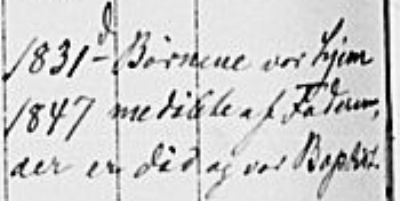 1831 - Børnene var hjem
1847 meddeelte af Faderen,
der er död og var Baptist.